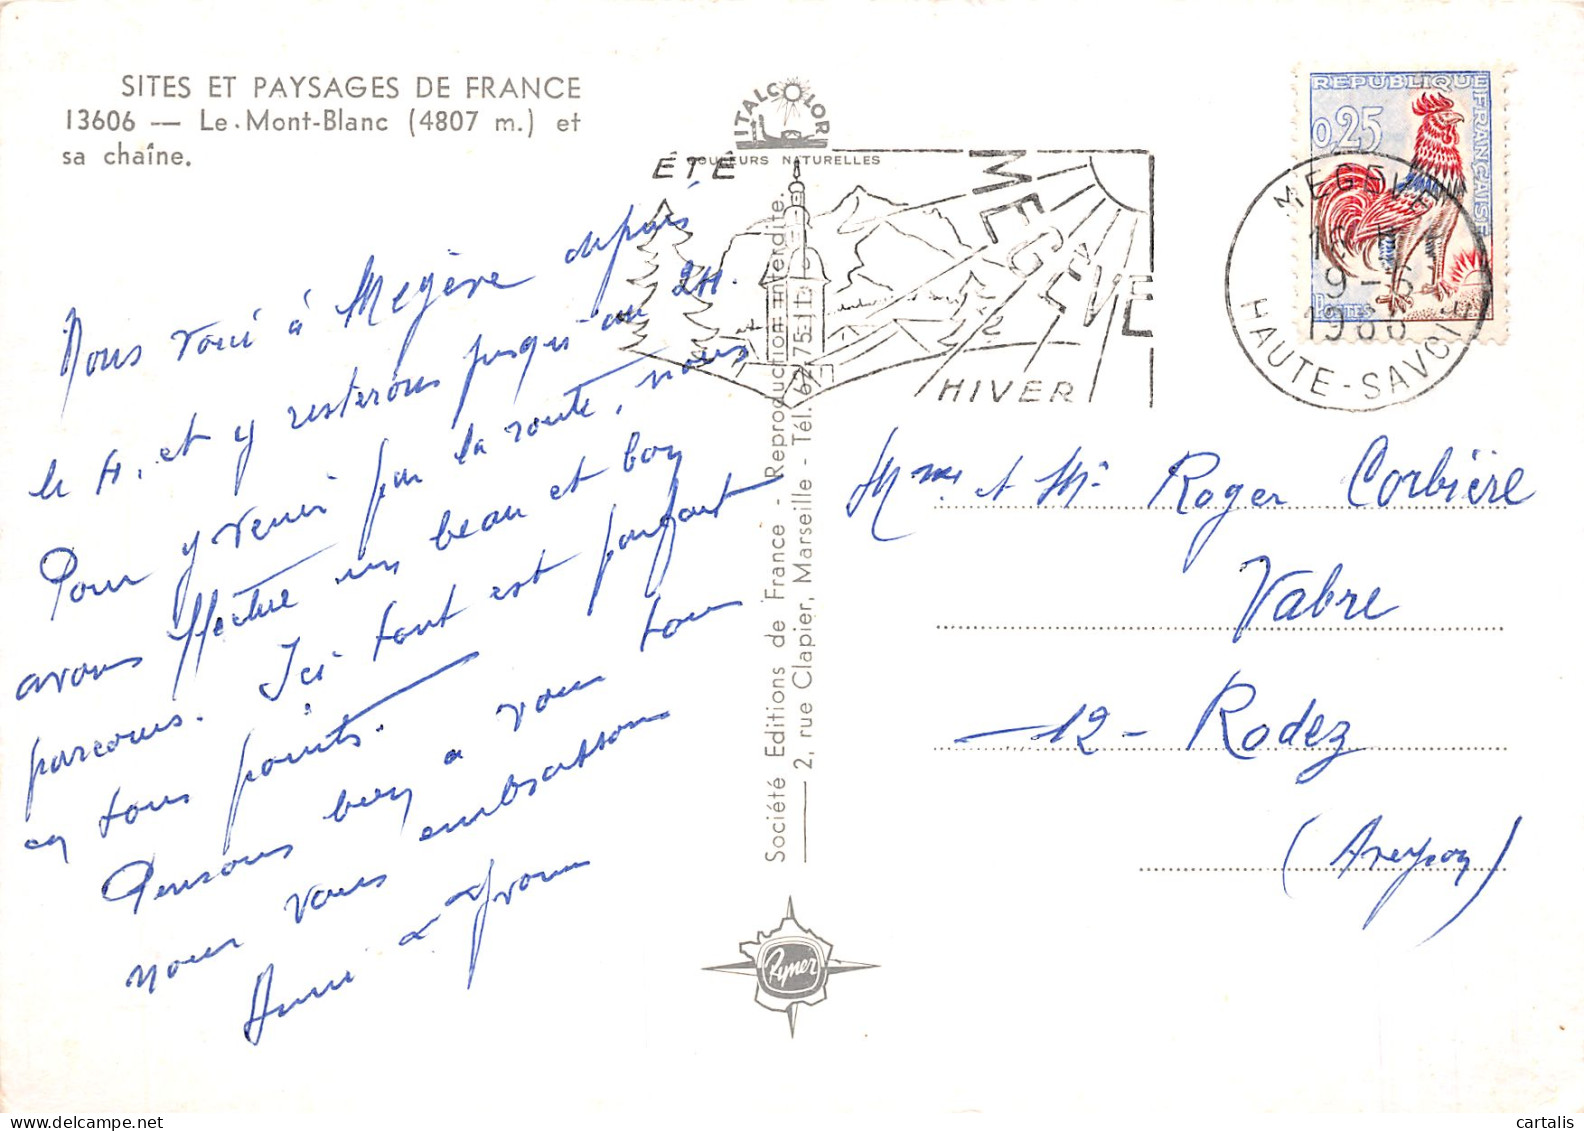 SITES ET PAYSAGES DE FRANCE
13606 — Le Mont-Blanc (4807 m.) et
sa chaîne.
ITALCOLOR
COULEURS NATURELLES
ÉTÉ
MEGÈVE
HIVER
REPUBLIQUE FRANÇAISE
0,25
POSTES
MEGEVE
19-6
1966
HAUTE-SAVOIE
Nous voici à Megève depuis
le 4. et y resterons jusqu'au 24.
Pour y venir par la route, nous
avons effectué un beau et bon
parcours. Ici tout est parfait
en tous points.
Pensons bien à vous tous
nous vous embrassons
Société Editions de France - Reproduction interdite.
2, rue Clapier, Marseille - Tél. 62.75-11
Rymer
Mme et Mr Roger Corbière
Vabre
12 - Rodez
(Aveyron)
cartalis